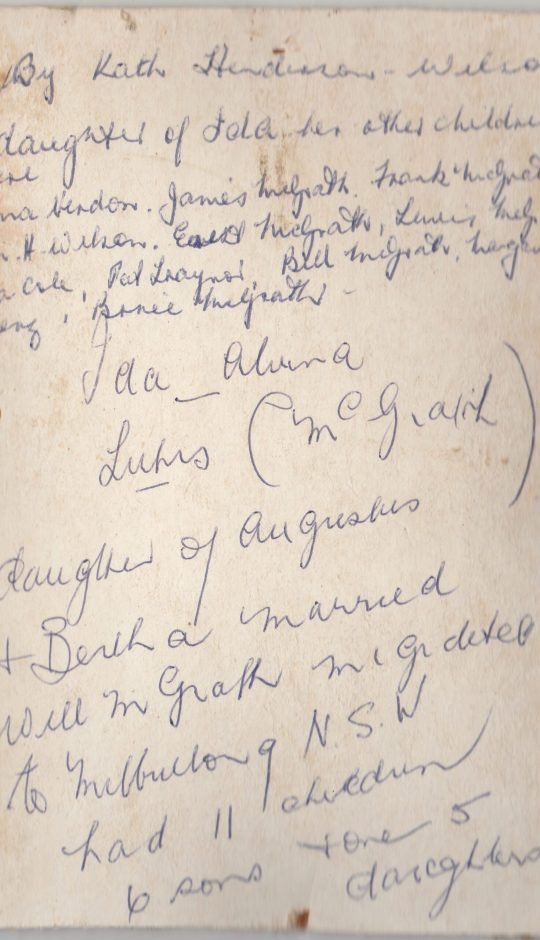 By Kath Henderson - Wilso
daughter of Ida her other childre
ere
na Verdon. James McGrath. Frank McGrat
. H Wilson. McGrath, Lewis McG
a Cole, Pat Traynor, Bill McGrath, Margar
eng, McGrath -
Ida - Alvina
Luhrs (McGrath)
Daughter of Augustus
+ Bertha married
Will McGrath migrated
to N.S.W
had 11 children
6 sons + 5
daughters